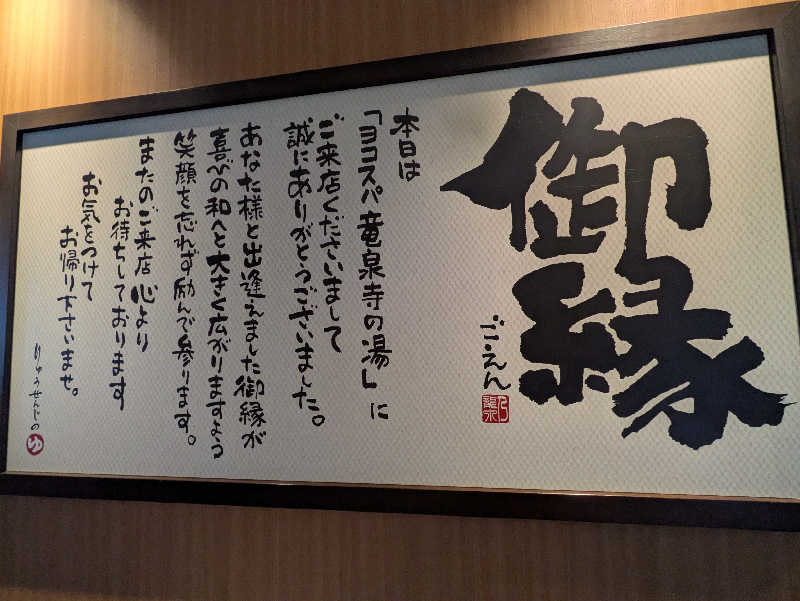 御縁
ごえん
本日は
「ヨコスパ竜泉寺の湯」に
ご来店くださいまして
誠にありがとうございました。
あなた様と出逢えました御縁が
喜びの和へと大きく広がりますよう
笑顔を忘れず励んで参ります。
またのご来店 心より
お待ちしております
お気をつけて
お帰り下さいませ。
りゅうせんじの
ゆ